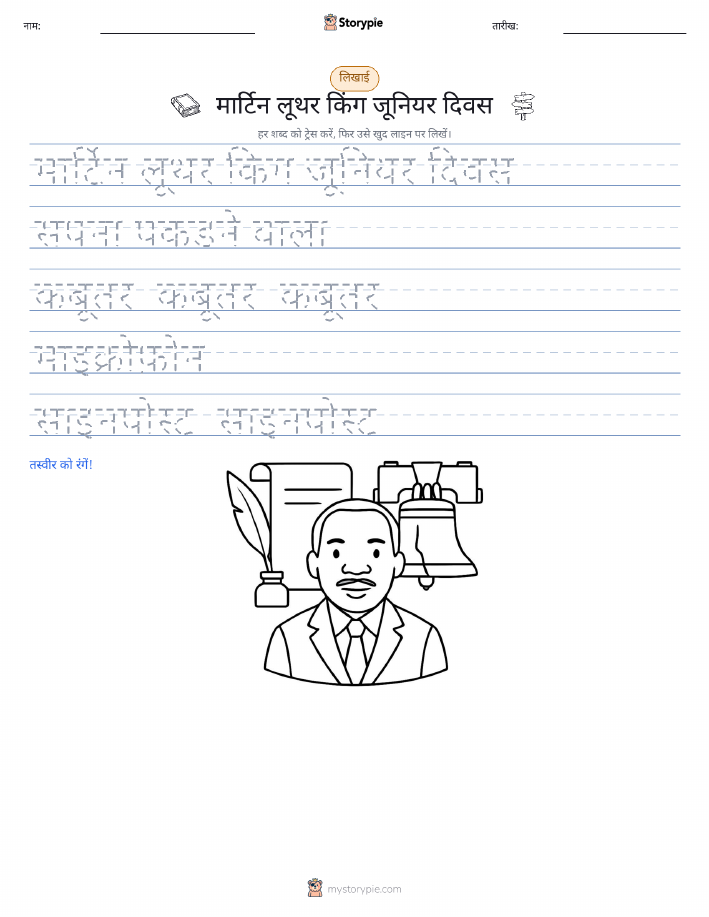 नाम:
Storypie
तारीख:
लिखाई
मार्टिन लूथर किंग जूनियर दिवस
हर शब्द को ट्रेस करें, फिर उसे खुद लाइन पर लिखें।
मार्टिन लूथर किंग जूनियर दिवस
सपना पकड़ने वाला
कबूतर कबूतर कबूतर
माइक्रोफ़ोन
साइनपोस्ट साइनपोस्ट
तस्वीर को रंगें!
mystorypie.com